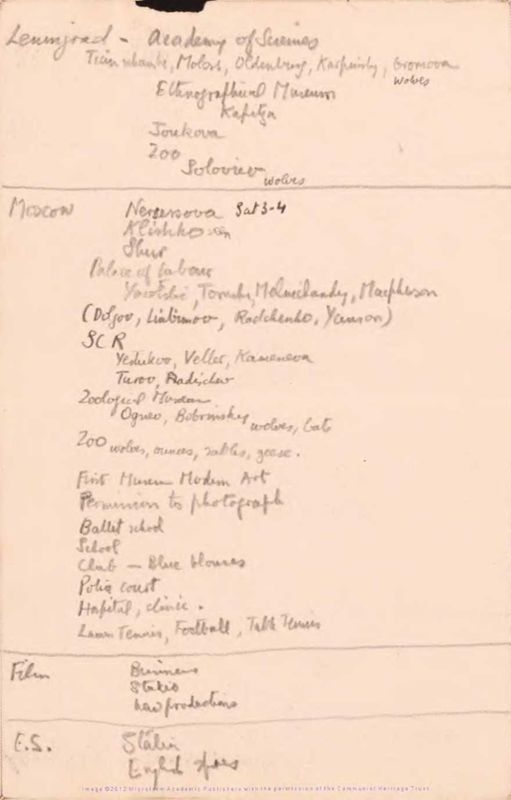 Leningrad - Academy of Sciences
Molas, Oldenburg, Karpinsky, Gromova
wolves
Ethnographical Museum
Kapitza
Joukova
Zoo
Soloviev
wolves
Moscow Nersesova Sat 3-4
Klishko
Shur
Palace of Labour
Yarotski, Tomski, Melnichansky, Macpherson
(Dogov, Liubimov, Radchenko, Yanson)
SCR
Yeshukov, Veller, Kameneva
Turov, Radischev
Zoological Museum
Ognev, Bobrinskey wolves, bats
Zoo wolves, ounces, sables, geese.
First Museum Modern Art
Permission to photograph
Ballet school
School
Club - Blue blouses
Police court
Hospital, clinic.
Lawn Tennis, Football, Table Tennis
Film Business
Studio
New productions
E.S. Stalin
English
Image ©2012 Microform Academic Publishers with the permission of the Communist Heritage Trust